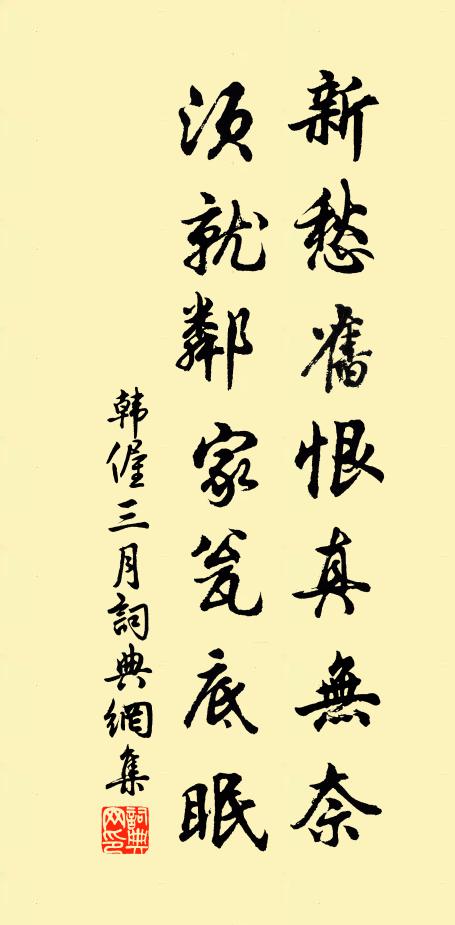 新愁舊恨真無奈
須就鄰家瓮底眠
韩偓三月詞典網集
詞典网印